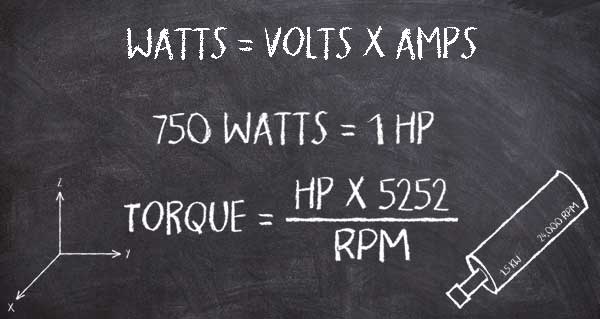 WATTS = VOLTS X AMPS
750 WATTS = 1 HP
TORQUE = HP X 5252
RPM
Z
Y
X
1.5 KW
24,000 RPM